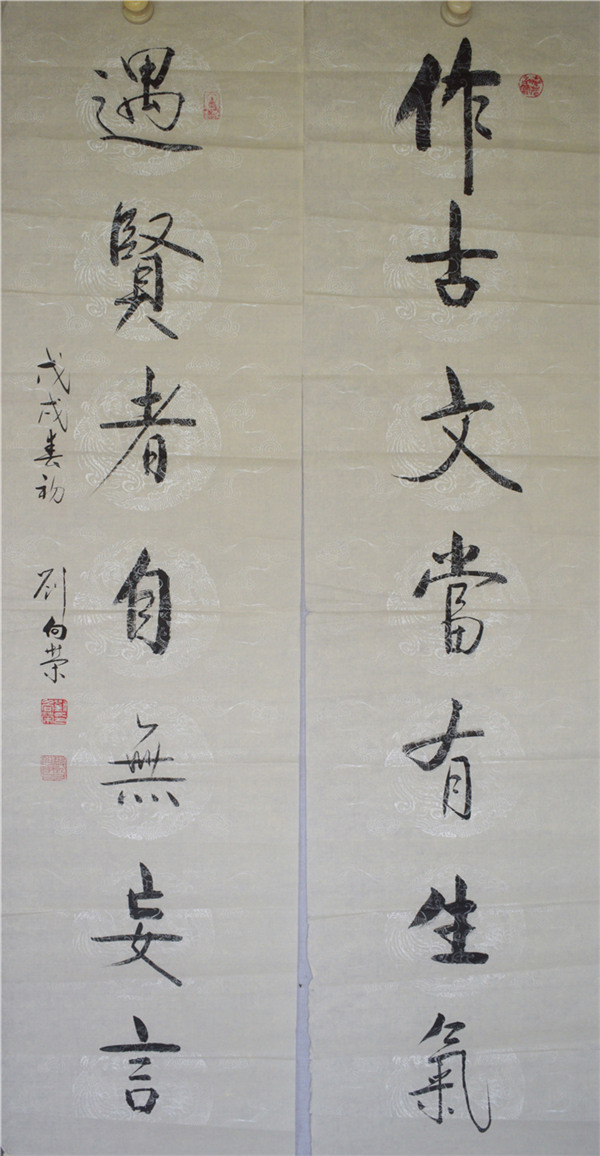 作古文當有生氣
遇賢者自無妄言
戊戌春初
劉向榮